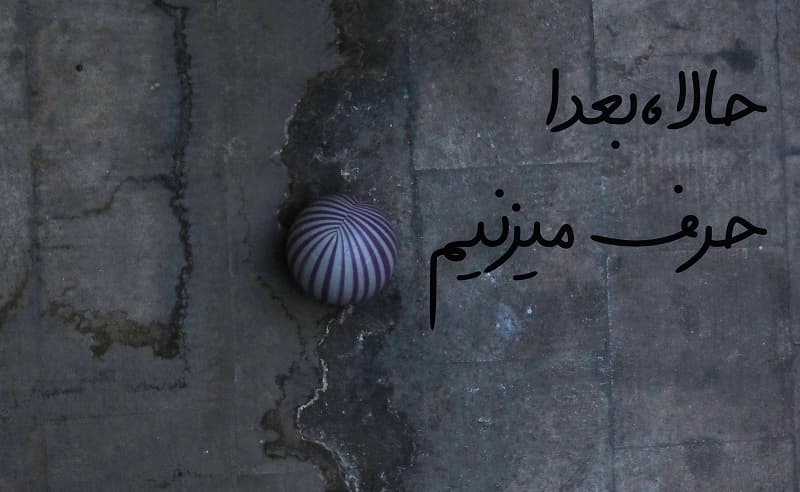 حالا، بعدا
حرف میزنیم